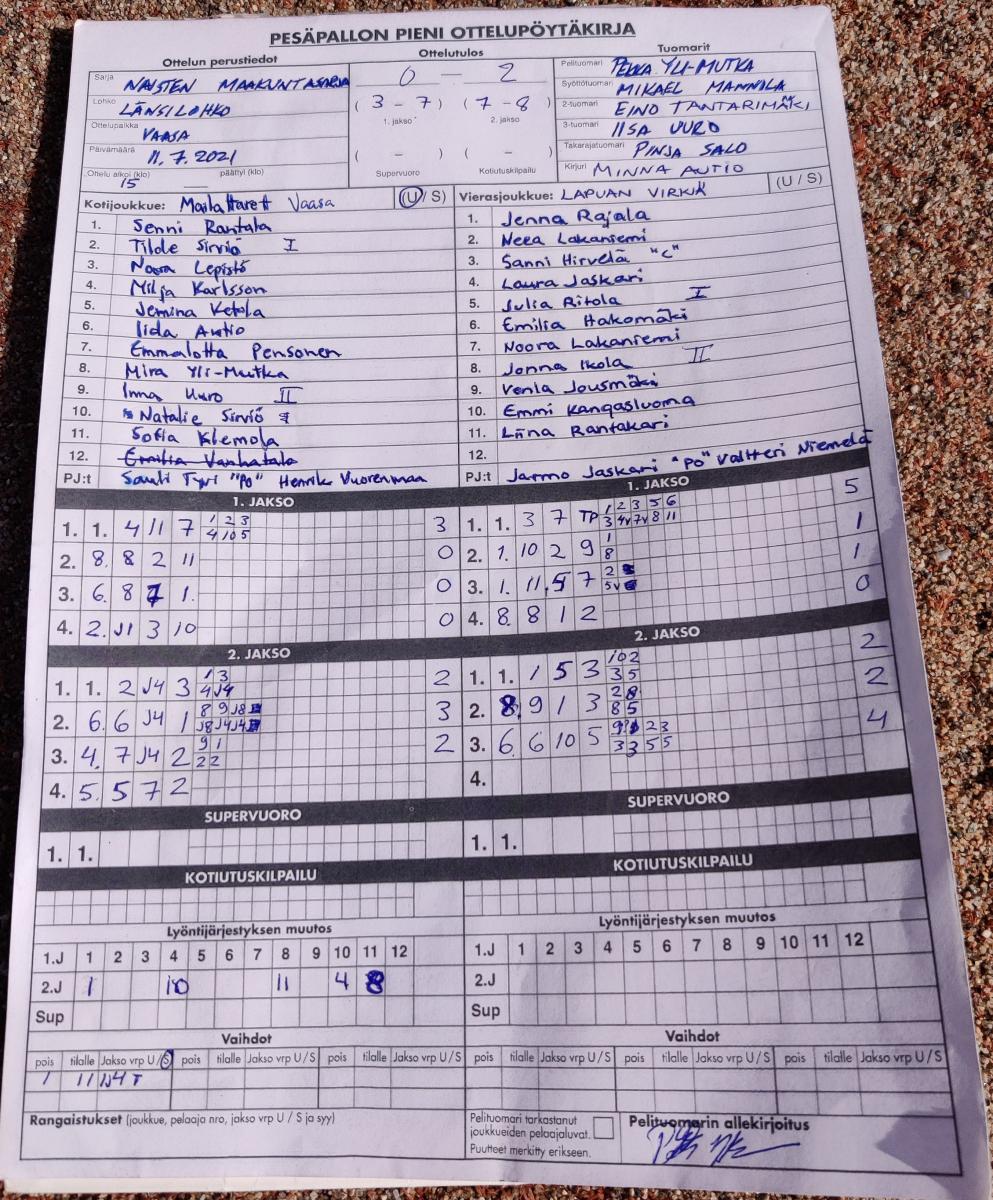 PESÄPALLON PIENI OTTELUPÖYTÄKIRJA
Ottelun perustiedot
Sarja NAISTEN MAAKUNTASARJA
Lohko LÄNSILOHKO
Ottelupaikka VAASA
Päivämäärä 11.7.2021
Ottelu alkoi (klo) 15 päättyi (klo)
Ottelutulos
0 — 2
( 3 - 7 ) ( 7 - 8 )
1. jakso 2. jakso
( - ) ( - )
Supervuoro Kotiutuskilpailu
Tuomarit
Pelituomari PEKKA YLI-MUTKA
Syöttötuomari MIKAEL MANNILA
2-tuomari EINO TANTARIMÄKI
3-tuomari IISA UURO
Takarajatuomari PINJA SALO
Kirjuri MINNA AUTIO
Kotijoukkue: Mailattaret Vaasa (U / S)
1. Senni Rantala
2. Tilde Sirviö I
3. Noora Lepistö
4. Milja Karlsson
5. Jemina Ketola
6. Iida Autio
7. Emmalotta Pensonen
8. Mira Yli-Mutka
9. Inna Uuro II
10. Natalie Sirviö
11. Sofia Klemola
12. Emilia Vanhatalo
PJ:t Sauli Tyri "PO" Henrik Vuorenmaa
Vierasjoukkue: LAPUAN VIRKIÄ (U / S)
1. Jenna Rajala
2. Neea Lakaniemi
3. Sanni Hirvelä "C"
4. Laura Jaskari
5. Julia Ritola I
6. Emilia Hakomäki
7. Noora Lakaniemi
8. Jonna Ikola II
9. Venla Jousmäki
10. Emmi Kangasluoma
11. Liina Rantakari
12.
PJ:t Jarmo Jaskari "PO" Valtteri Niemelä
1. JAKSO
1. 1. 4 11 7 1 2 3 3
4 10 5
2. 8. 8 2 11 0
3. 6. 8 7 1. 0
4. 2. J1 3 10 0
1. JAKSO
1. 1. 3 7 TP 1 2 3 5 6 5
3 4v 7v 8 11
2. 1. 10 2 9 1 1
8
3. 1. 11. 5 7 2 1
5v
4. 8. 8 1 2 0
2. JAKSO
1. 1. 2 J4 3 1 3 2
4 J4
2. 6. 6 J4 1 8 9 J8 3
J8 J4 J4
3. 4. 7 J4 2 9 1 2
2 2
4. 5. 5 7 2
2. JAKSO
1. 1. 1 5 3 10 2 2
3 5
2. 8. 9 1 3 2 8 2
8 5
3. 6. 6 10 5 9 1 2 3 4
3 3 5 5
4.
SUPERVUORO
1. 1.
SUPERVUORO
1. 1.
KOTIUTUSKILPAILU
KOTIUTUSKILPAILU
Lyöntijärjestyksen muutos
1.J 1 2 3 4 5 6 7 8 9 10 11 12
2.J 1 10 11 4 8
Sup
Lyöntijärjestyksen muutos
1.J 1 2 3 4 5 6 7 8 9 10 11 12
2.J
Sup
Vaihdot
pois tilalle Jakso vrp U / S pois tilalle Jakso vrp U / S pois tilalle Jakso vrp U / S
Vaihdot
pois tilalle Jakso vrp U / S pois tilalle Jakso vrp U / S pois tilalle Jakso vrp U / S
Rangaistukset (joukkue, pelaaja nro, jakso vrp U / S ja syy)
Pelituomari tarkastanut
joukkueiden pelaajaluvat.
Puutteet merkitty erikseen.
Pelituomarin allekirjoitus